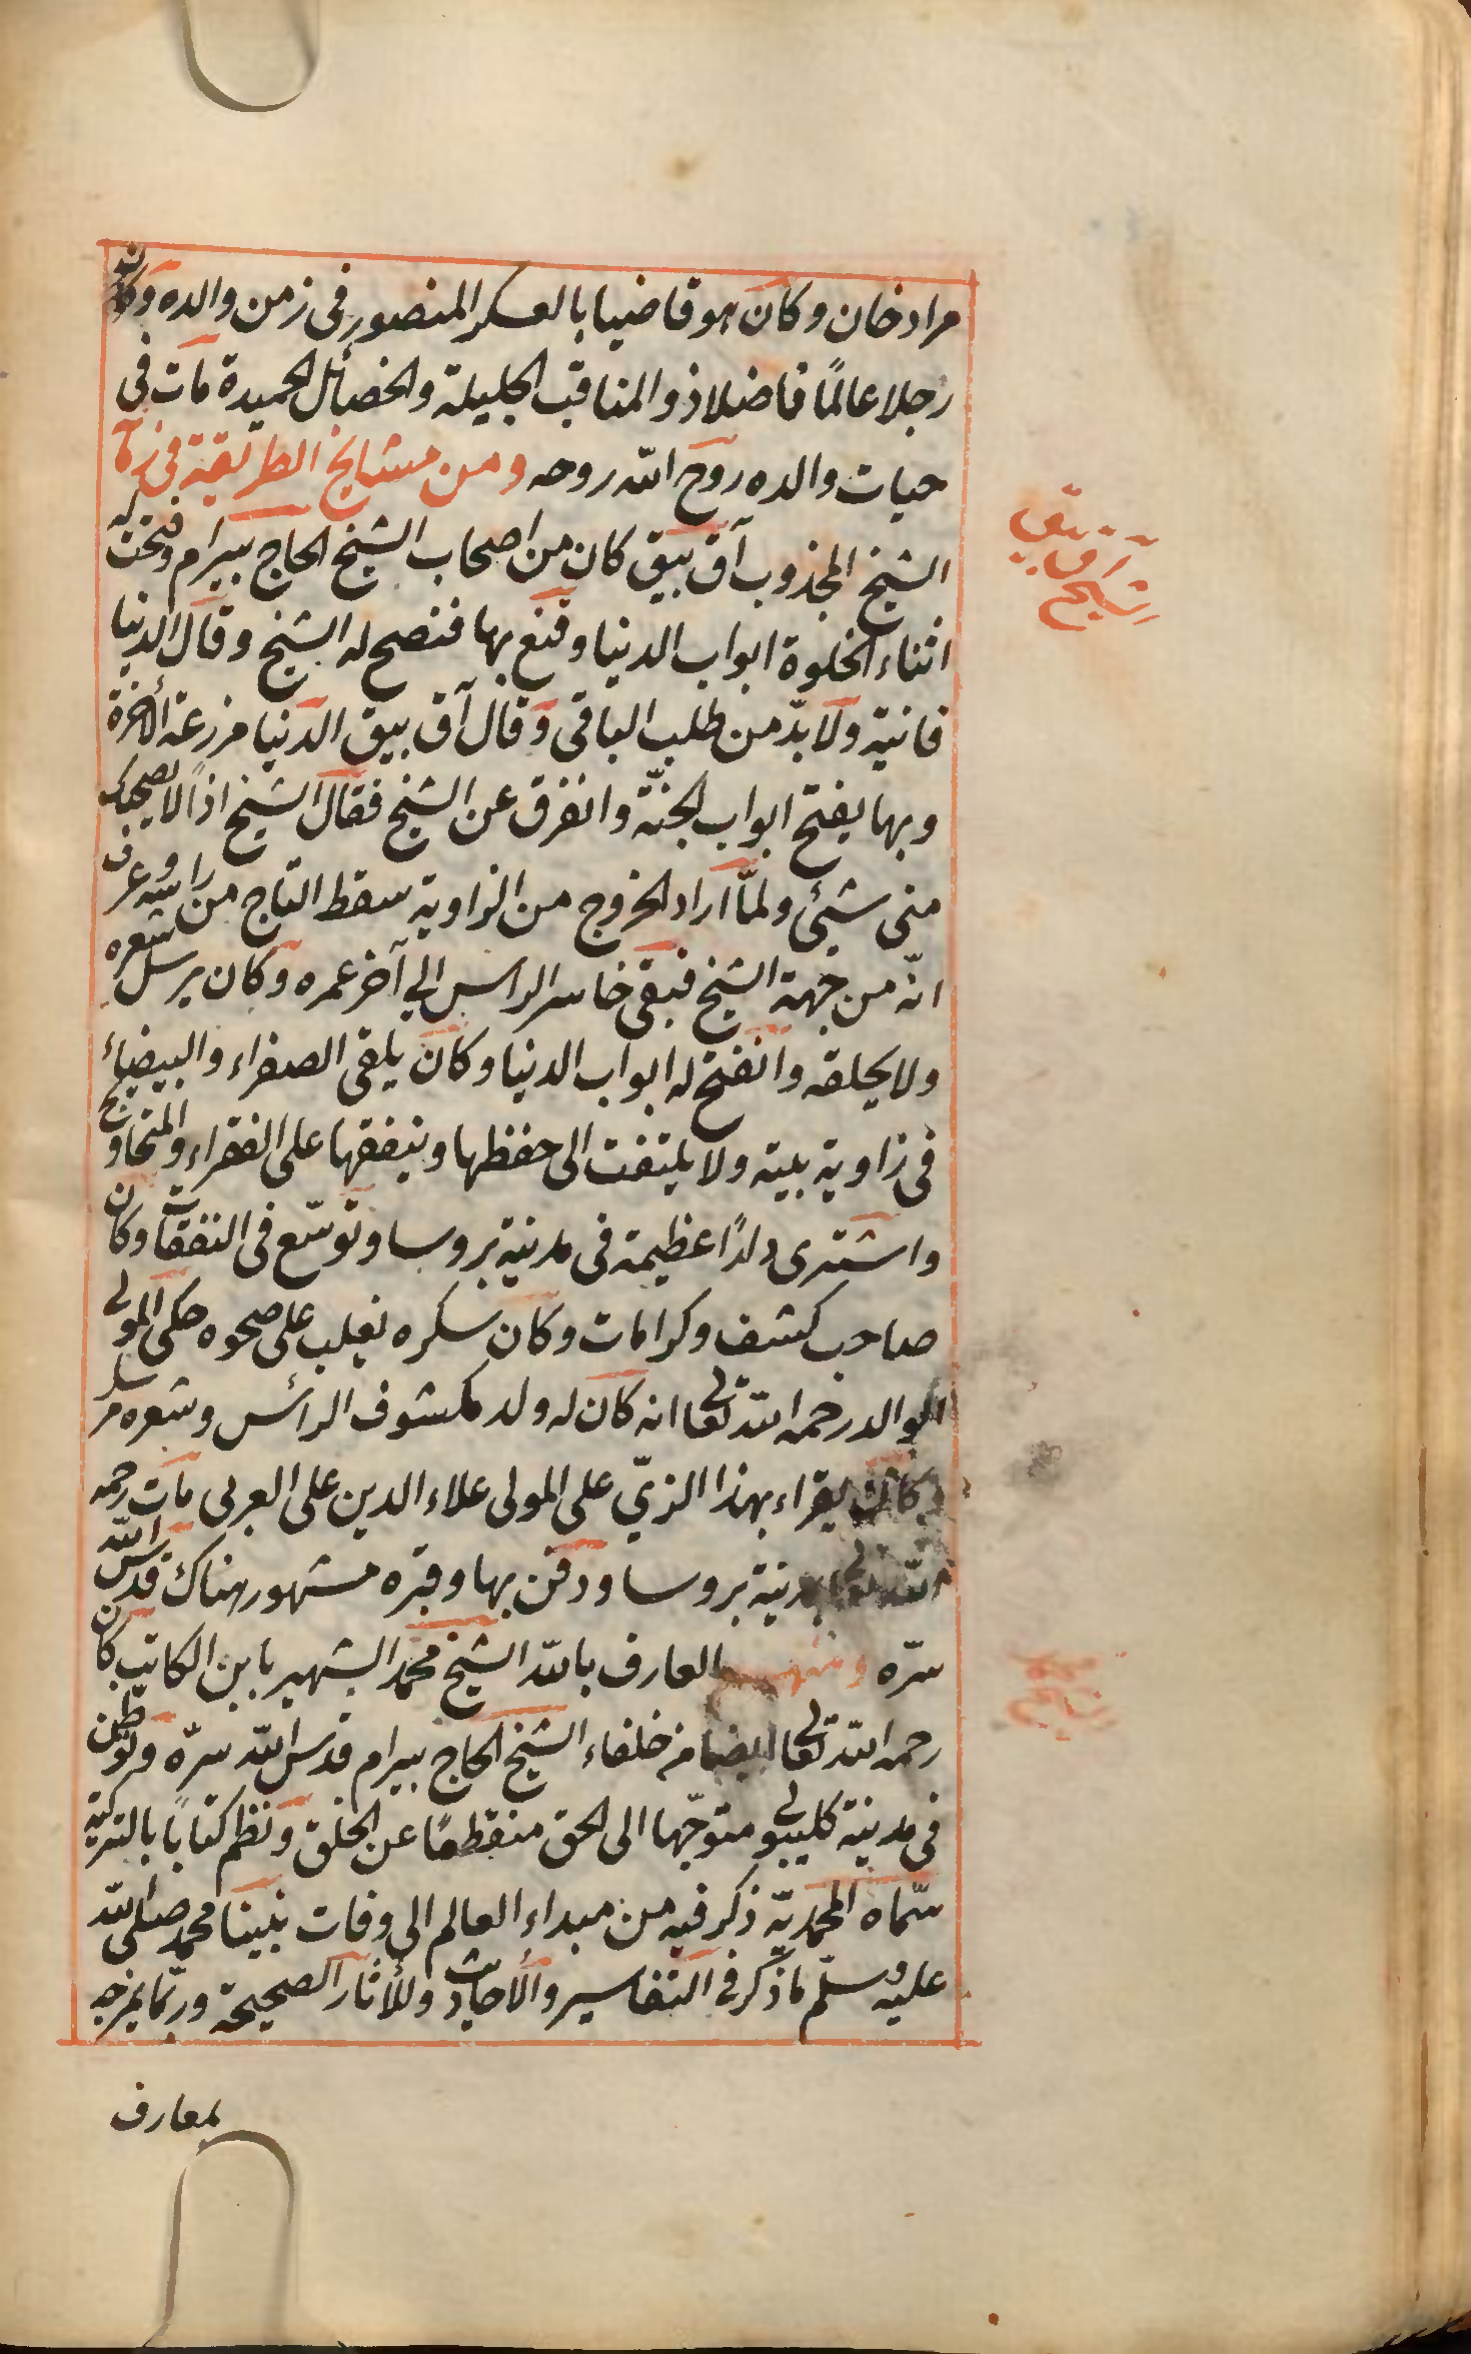 مراد خان وكان هو قاضيا بالعسكر المنصور فى زمن والده وكانه
رجلا عالمًا فاضلا ذو المناقب الجليلة والخصائل الحميدة مات فى
حيات والده روح الله روحه ومن مشايخ الطريقة فى زمانه
الشيخ المجذوب آق بيق كان من اصحاب الشيخ الحاج بيرام وفتحت له
اثناء الخلوة ابواب الدنيا وقنع بها فنصح له الشيخ وقال الدنيا
فانية ولا بدّ من طلب الباقى وقال آق بيق الدنيا مزرعة الأخرة
وبها يفتح ابواب الجنّة وانفرق عن الشيخ فقال الشيخ اذًا لا يصحبك
منى شيئ ولمّا اراد الخروج من الزاوية سقط التاج من راسه وعرف
انّه من جهة الشيخ فبقى خاسر الراس الى آخر عمره وكان يرسل شعره
ولا يحلقه وانفتح له ابواب الدنيا وكان يلقى الصفراء والبيضاء
فى زاوية بيته ولا يلتفت الى حفظها وينفقها على الفقراء والمحاويج
واشترى دارًا عظيمة فى مدنية بروسا وتوسّع فى النفقات وكان
صاحب كشف وكرامات وكان سكره يغلب على صحوه حكى المولى
الوالد رحمه الله تعالى انه كان له ولد مكشوف الرائس وشعره مرسل
وكان يقراء بهذا الزيّ على المولى علاء الدين على العربى مات رحمه
الله تعالى بمدنية بروسا ودفن بها وقبره مشهور هناك قدس الله
سرّه ومنهم العارف بالله الشيخ محمد الشهير بابن الكاتب كان
رحمه الله تعالى ايضا من خلفاء الشيخ الحاج بيرام قدس الله سرّه وتوطّن
فى مدنية كليبولى متوجّها الى الحق منقطعًا عن الخلق ونظم كتابًا بالتركية
سمّاه المحمديّة ذكر فيه من مبداء العالم الى وفات نبينا محمد صلى الله
عليه وسلّم ما ذكر فى التفاسير والأحاديث وللأثار الصحيحة وربّما يمزجه
بمعارف
آق بيق
شيخ